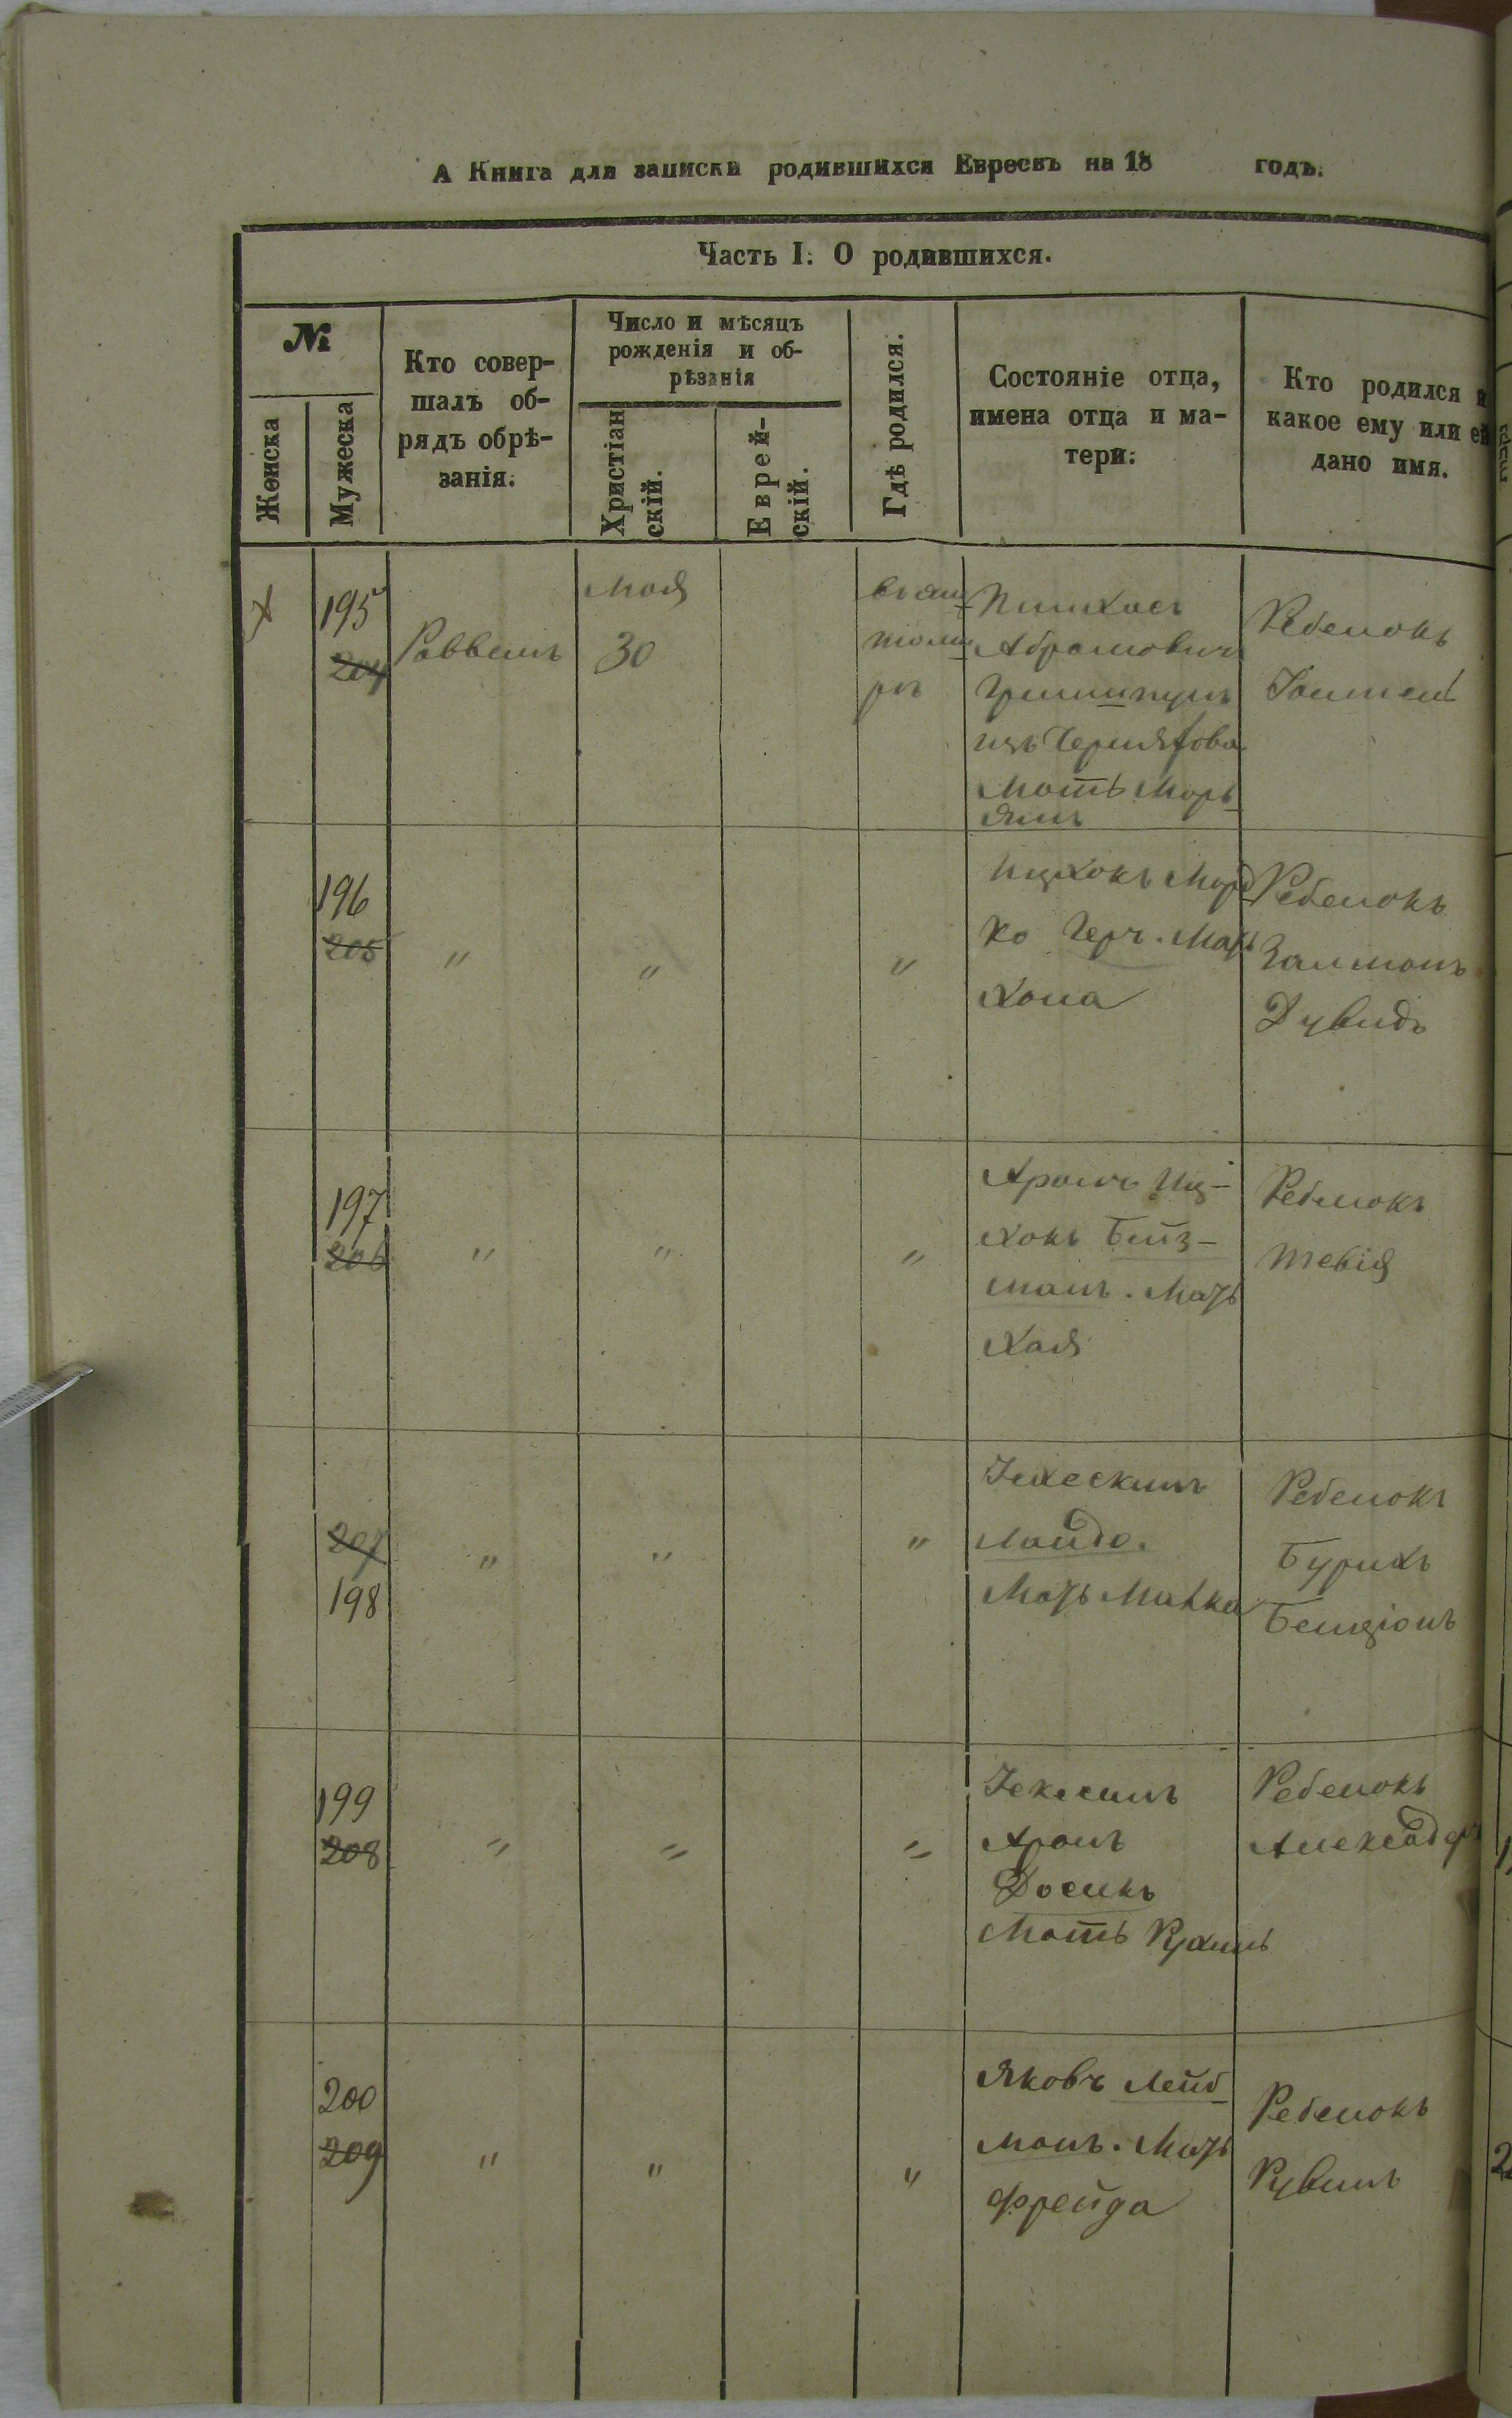 А Книга для записки родившихся Евреевъ на 18 годъ.
Часть I. О родившихся.
№
Женска
Мужеска
Кто совер-
шалъ об-
рядъ обрѣ-
занія.
Число и мѣсяцъ
рожденія и об-
рѣзанія
Христіан
скій.
Еврей-
скій.
Гдѣ родился.
Состояніе отца,
имена отца и ма-
тери.
Кто родился и
какое ему или ей
дано имя.
195
204
Раввинъ
мая
30
томи
рѣ
Пинхасъ
Абрамовичъ
изъ Черняхова
Мать Марь
ямъ
Ребенокъ
196
205
"
"
"
Ицхокъ Мord
ко Герч. Мать
Хона
Ребенокъ
Залманъ
Дувидъ
197
206
"
"
"
Аронъ Иц-
хокъ Бейз-
манъ. Мать
Хая
Ребенокъ
Тевія
207
198
"
"
"
Іехескилъ
Лайда.
Мать Малка
Ребенокъ
Бурихъ
Бенціонъ
199
208
"
"
"
Аронъ
Досикъ
Мать Рухиль
Ребенокъ
Александръ
200
209
"
"
"
Яковъ Лейб
манъ. Мать
Фрейда
Ребенокъ
Рувинъ